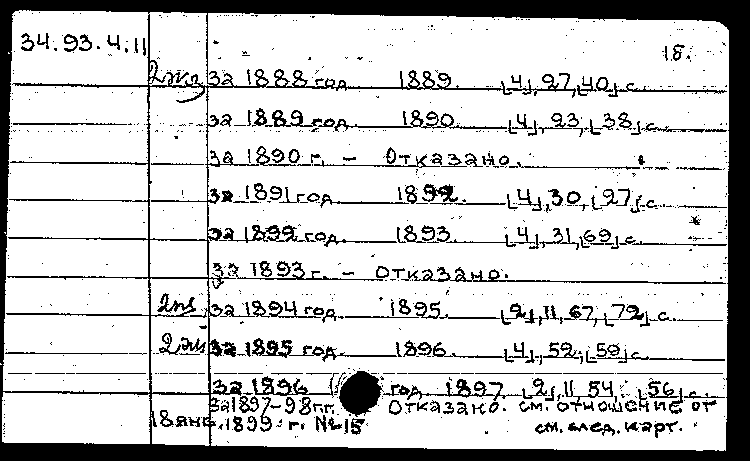 34.93.4.11
18.
2 экз за 1888 год 1889. [4], 27, [40] с.
за 1889 год 1890. [4], 23, [38] с.
за 1890 г. – Отказано.
за 1891 год 1892. [4], 30, [27] с.
за 1892 год. 1893. [4], 31, [69] с.
за 1893 г. – отказано.
за 1894 год 1895. [2], 11, 67, [72] с.
за 1895 год. 1896. [4], 52, [59] с.
за 1896 год 1897 [2], 11 54, [56] с.
за 1897–98 г.г. Отказано. см. отношение от
18 янв. 1899 г. № 15 см. след. карт.